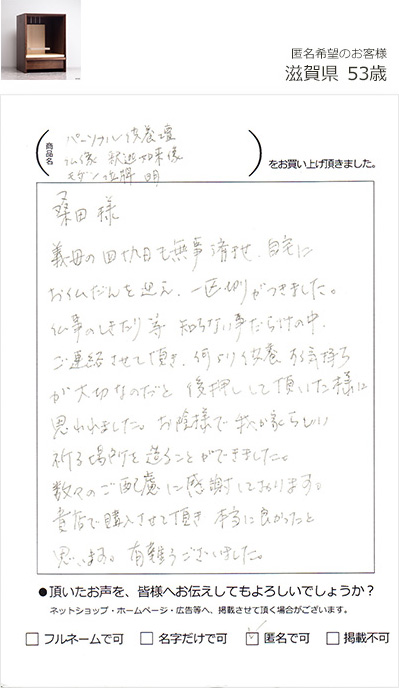 匿名希望のお客様
滋賀県 53歳
商品名
パーソナル供養壇
仏像 釈迦如来像
モダン位牌 明
をお買い上げ頂きました。
桑田 様
義母の四九日も無事済ませ、自宅に
お仏だんを迎え、一区切りがつきました。
仏事のしきたり等 知らない事だらけの中、
ご連絡させて頂き、何より供養する気持ち
が大切なのだと 後押しして頂いた様に
思われました。お陰様で 我が家らしい
祈る場所を造ることができました。
数々のご配慮に感謝しております。
貴店で購入させて頂き 本当に良かったと
思います。有難うございました。
●頂いたお声を、皆様へお伝えしてもよろしいでしょうか？
ネットショップ・ホームページ・広告等へ、掲載させて頂く場合がございます。
フルネームで可 名字だけで可 匿名で可 掲載不可